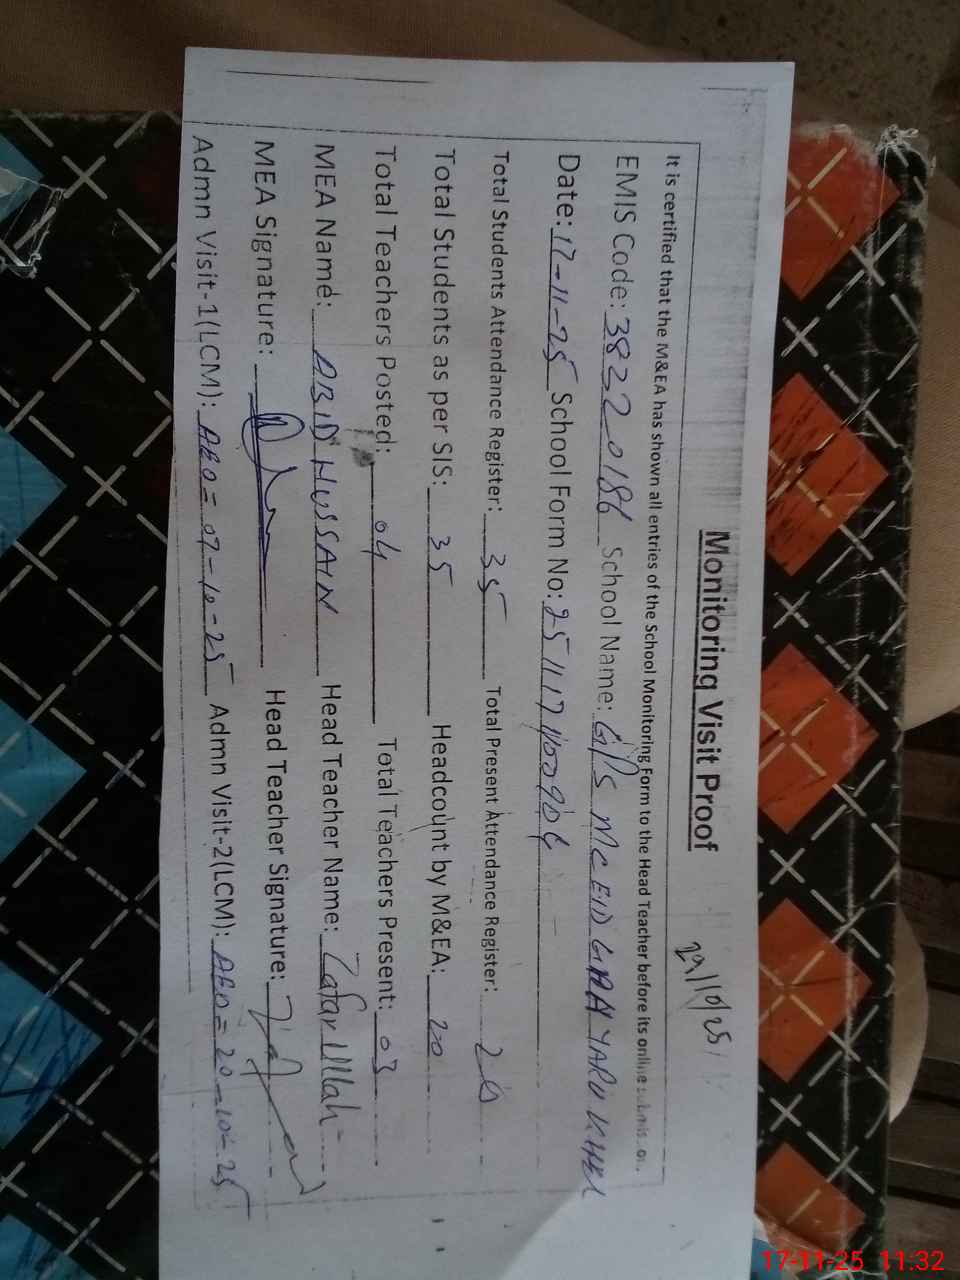 Monitoring Visit Proof
29/10/25
It is certified that the M&EA has shown all entries of the School Monitoring Form to the Head Teacher before its online submission.
EMIS Code: 38220186 School Name: GPS MC EID GAH YARU KHEL
Date: 17-11-25 School Form No:
Total Students Attendance Register: 35 Total Present Attendance Register: 20
Total Students as per SIS: 35 Headcount by M&EA: 20
Total Teachers Posted: 04 Total Teachers Present: 03
MEA Name: ABID HUSSAIN Head Teacher Name: Zafar Ullah
MEA Signature: Head Teacher Signature:
Admn Visit-1(LCM): AEO = 07-10-25 Admn Visit-2(LCM): AEO = 20-10-25
17-11-25 11:32